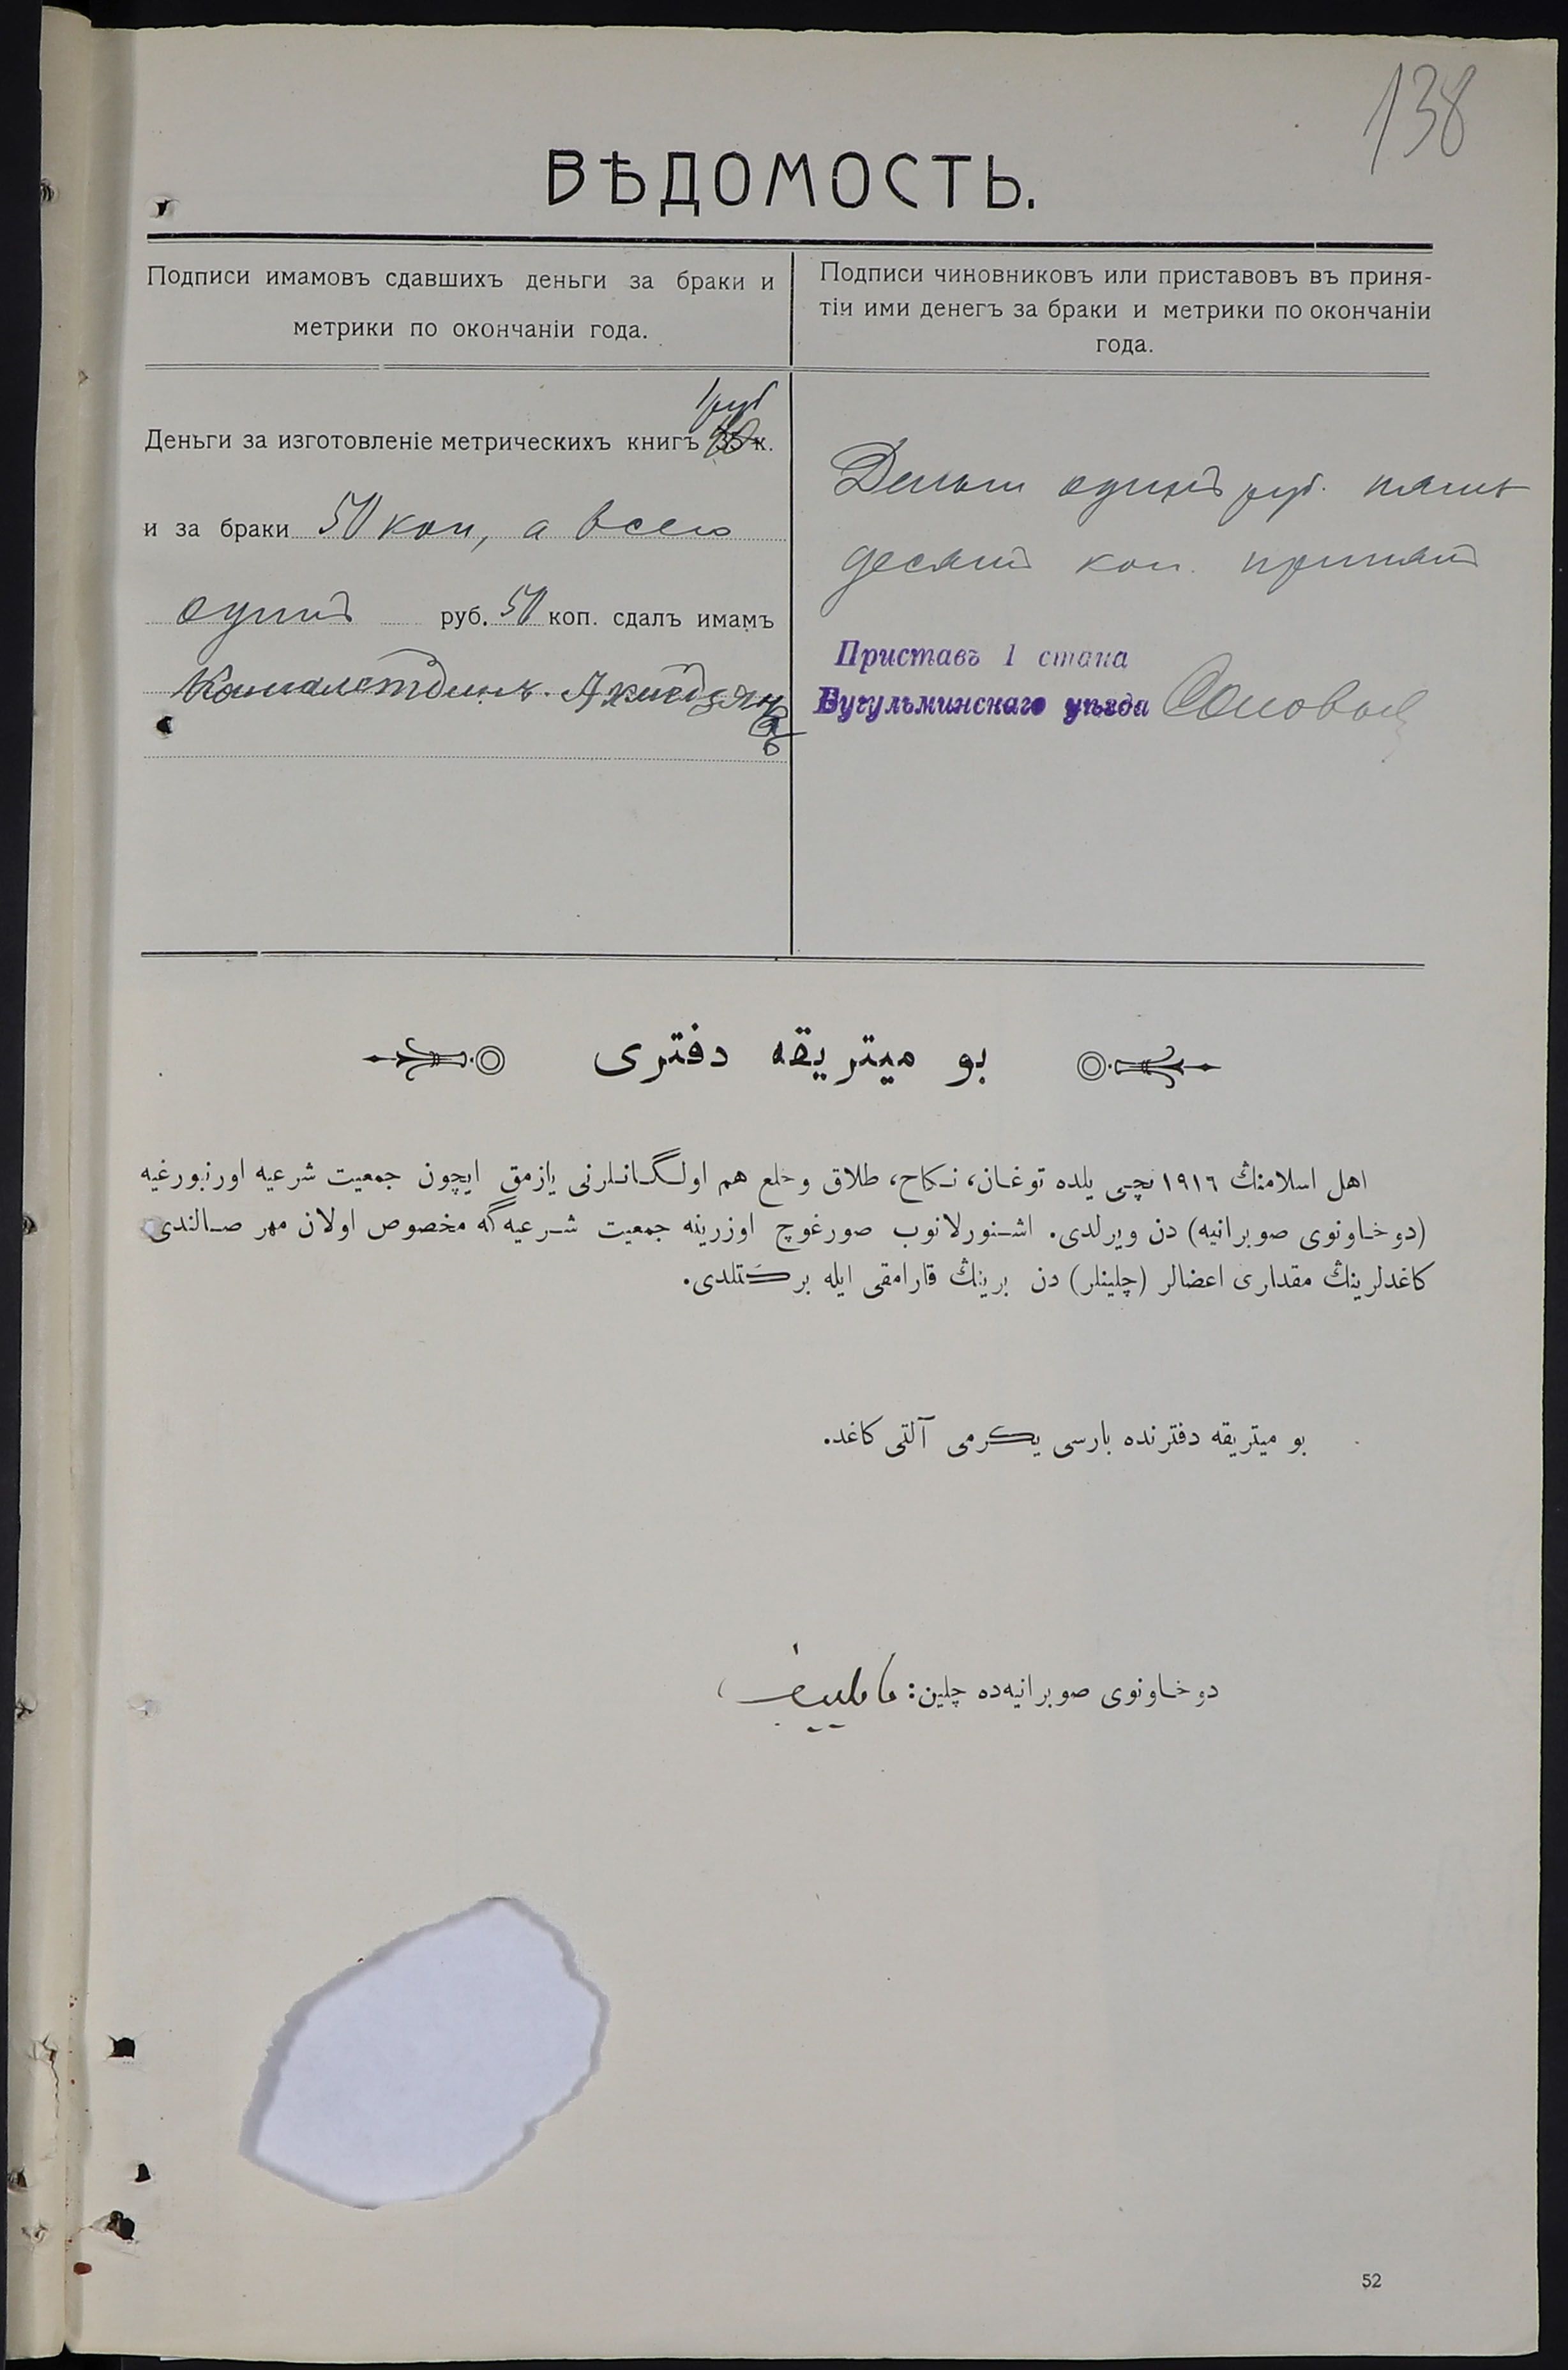 138
ВѢДОМОСТЬ.
Подписи имамовъ сдавшихъ деньги за браки и
метрики по окончаніи года.
Подписи чиновниковъ или приставовъ въ приня-
тіи ими денегъ за браки и метрики по окончаніи
года.
1 руб
Деньги за изготовленіе метрическихъ книгъ 35 к.
и за браки 50 коп, а всего
одинъ руб. 50 коп. сдалъ имамъ
Деньги одинъ руб. пять
десятъ коп. принялъ
Приставъ 1 стана
Бугульминскаго уѣзда
بو ميتريقه دفتری
اهل اسلامنڭ ١٩١٦ نچی يلده توغان، نكاح، طلاق وخلع هم اولگانلرنی يازمق ايچون جمعيت شرعيه اورنبورغيه
(دوخاونوی صوبرانيه) دن ويرلدی. اشنورلانوب صورغوچ اوزرينه جمعيت شرعيه گه مخصوص اولان مهر صالندی
كاغدلرينڭ مقداری اعضالر (چلينلر) دن برينڭ قارامقی ايله بركتلدی.
بو ميتريقه دفترنده بارسی يكرمی آلتی كاغد.
دوخاونوی صوبرانيه‌ده چلين:
52